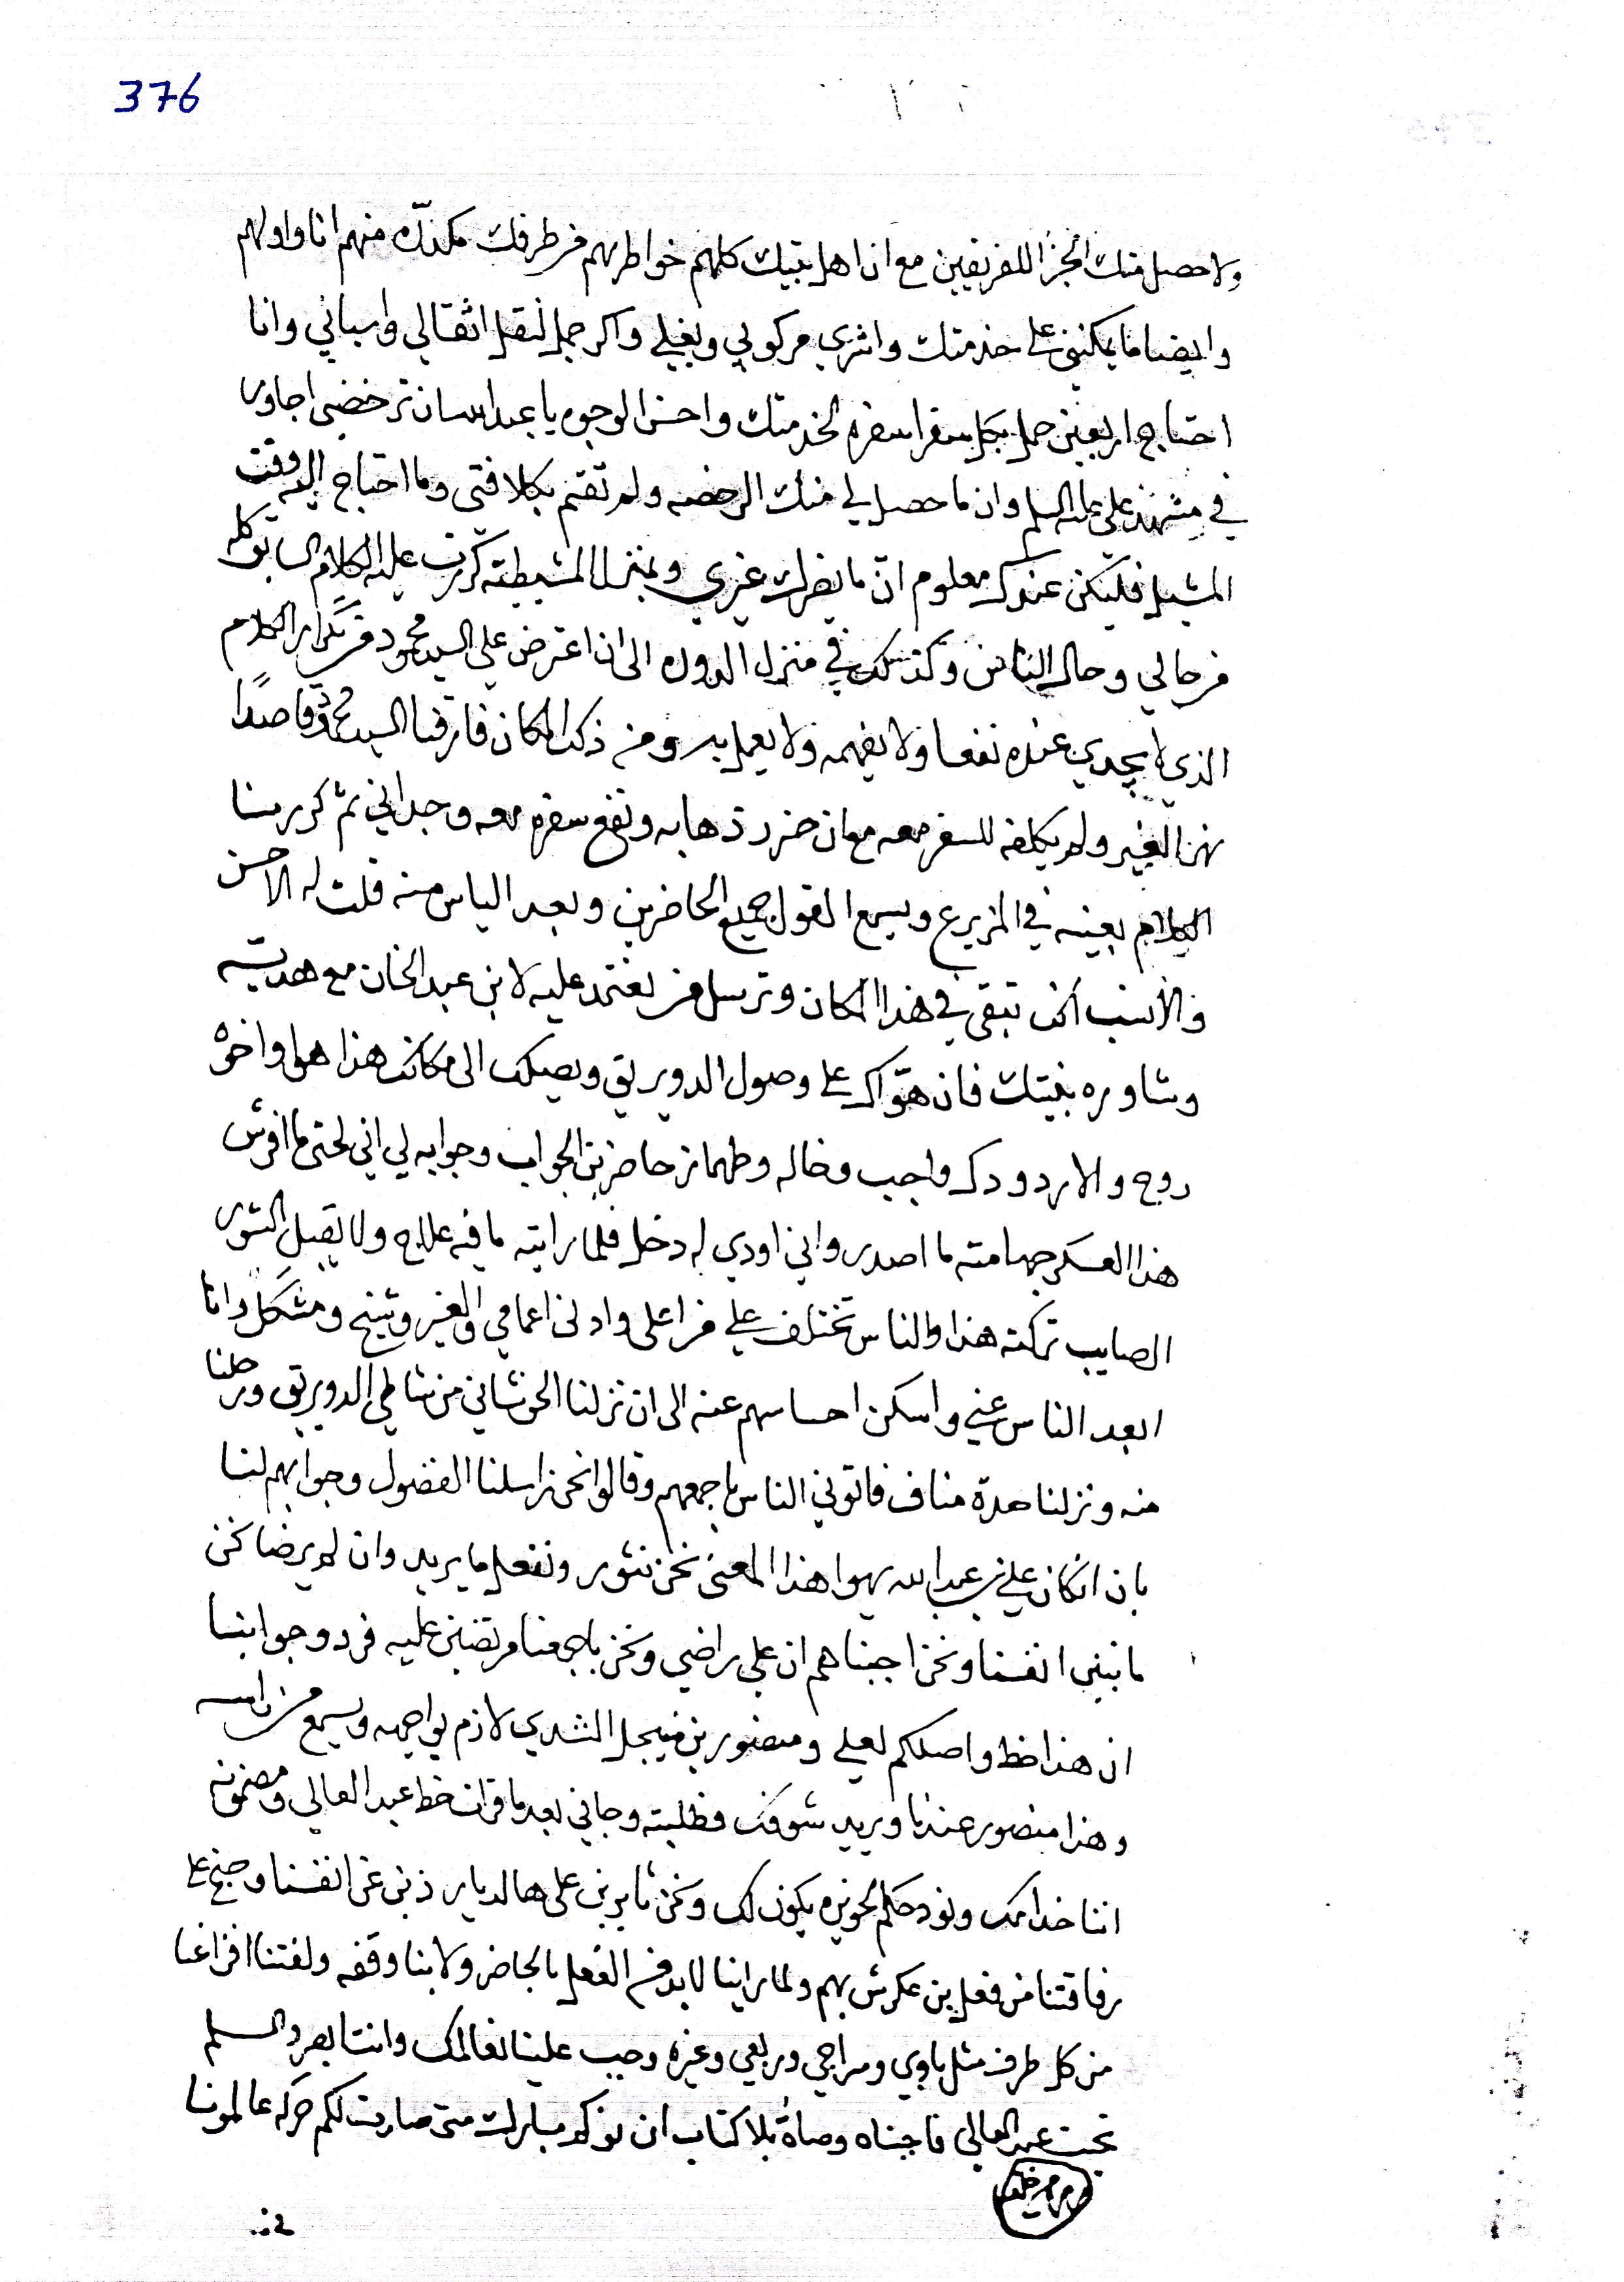 376
ولا حصل منك الجزا للفريقين مع ان اهل بيتك كلهم خواطرهم من طرفك مكدره منهم انا واولهم
وايضا ما يمكنني على خدمتك واشري مركوبي وبغيلي واكر جمل لنقل اثقالي واسبابي وانا
احتاج اربعين حمل بكل سفر اسفره لخدمتك واحسن الوجوه يا عبدالله ان ترخصني اجاور
في مشهد علي عليه السلم وان ما حصل لي منك الرخصه ولم تقم بكلافتي وما احتاج اليه وقت
المشيل فليكن عندك معلوم ان ما يضرك غيري وبمنزل المشيطيه كررت عليه الكلام السابق كله
من حالي وحال الناس وكذلك في منزل الدوره الى ان اعترض علي السيد محمود من تكرار الكلام
الذي لا يجدي عنده نفعا ولا يفهمه ولا يعمل به ومن ذلك المكان فارقنا السيد محمود قاصدًا
نهر الغير ولم يكلفه للسفر معه مع ان ضرر ذهابه ونفع سفره معه وجداني ثم كررنا
الكلام بعينه في المزيرع ويسمع القول جميع الحاضرين وبعد الياس منه قلت له الاحسن
والانسب انك تبقى في هذا المكان وترسل من تعتمد عليه لابن عبد الخان مع هديته
وشاوره بنيتك فان هواك على وصول الدويريق ويصلك الى مكانك هذا هو واخوه
روح والا ردودك واجب وخاله وطهماز حاضرين الجواب وجوابه لي اني لحتى ما افرش
هذا العسكر جهامته ما اصدر واني اودي له دخل فلما رايته ما فيه علاج ولا يقبل الشور
الصايب تركته هذا والناس تختلف علي من اعلى وادنى اعمامي والغير وشيخ ومشكل وانا
ابعد الناس عني واسكن احساسهم عنه الى ان نزلنا الحرشاني من شاطي الدويريق ورحلنا
منه ونزلنا حدرة مناف فاتوني الناس باجمعهم وقالوا نحن راسلنا الفضول وجوابهم لنا
بان انكان علي بن عبدالله يهوا هذا المعنى نحن نثور ونفعل ما يريد وان لم يرضا نحن
ما نبني انفسنا ونحن اجبناهم ان علي راضي ونحن باجمعنا مرتضين عليه فردو جوابنا
ان هذا خط واصلكم لعلي ومنصور بن فيجل الشدي لازم يواجهه ويسمع من راسه
وهذا منصور عندنا ويريد شوفك فطلبته وجاني بعد ما قرات خط عبد العالي ومضمونه
اننا خدامك ونود حكم الحويزه يكون لك ونحن ثايرين على هالديار ذبن عن انفسنا وضيم على
رفاقتنا من فعل بن عكرش بهم ولما راينا لا بد من الفعل بالحاضر ولا بنا وقفه ولفتنا افزاعنا
من كل طرف مثل باوي ومراجي وربعي وغيره وجب علينا نعالمك وانت ابصر والسلم
تحت عبد العالي فاجبناه وصاةً بلا كتاب ان نوكد مبارك متى صارت لكم حركه عالمونا